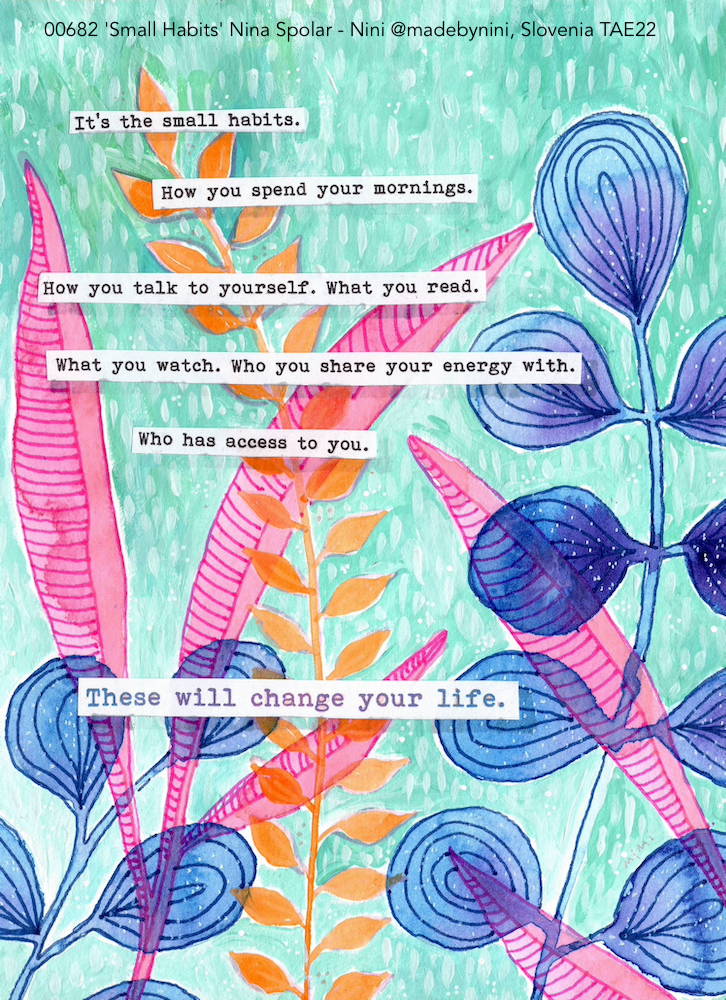 00682 'Small Habits' Nina Spolar - Nini @madebynini, Slovenia TAE22
It's the small habits.
How you spend your mornings.
How you talk to yourself. What you read.
What you watch. Who you share your energy with.
Who has access to you.
These will change your life.